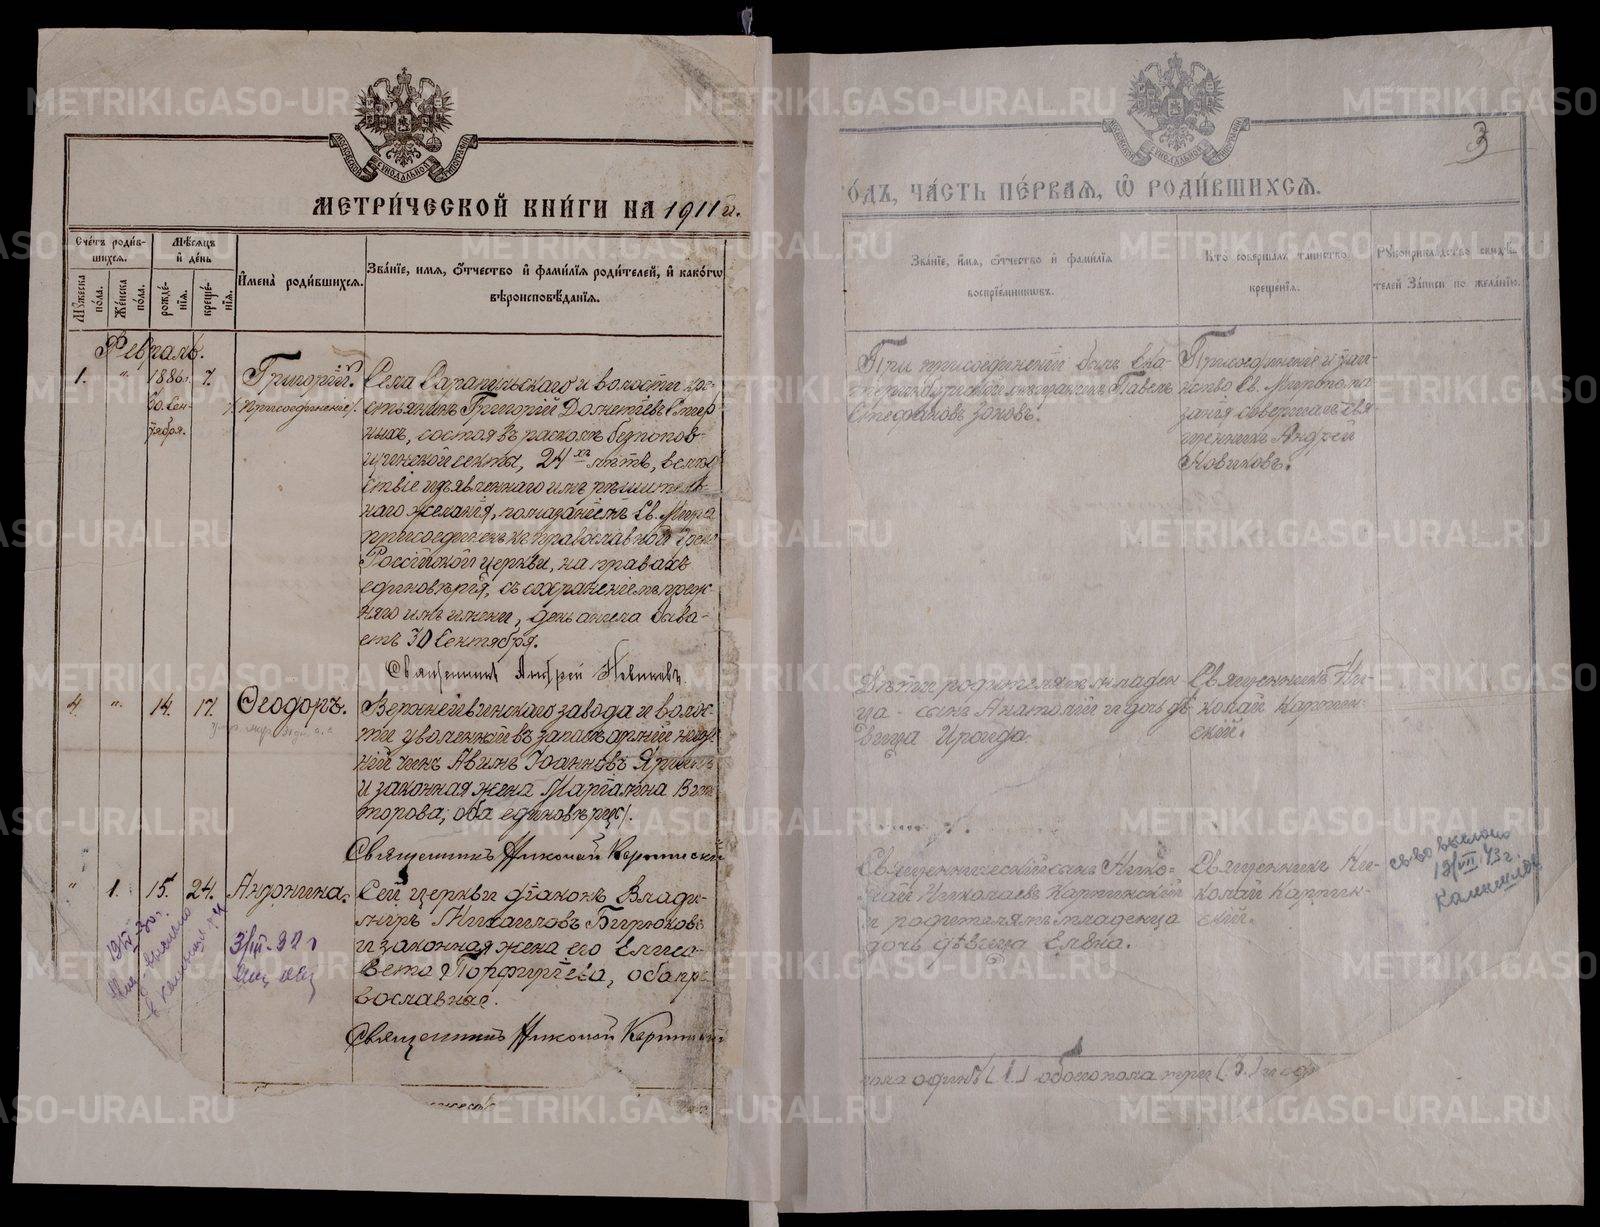 МОСКОВСКОЙ СѴНОДАЛЬНОЙ ТИПОГРАФІИ
МЕТРИ́ЧЕСКОЙ КНИ́ГИ НА 1911 г.
Сче́тъ роди́в-
шихсѧ.
Мѣ́сѧцъ
и҆ де́нь
Мꙋ́жеска
по́ла.
Же́нска
по́ла.
рожде́-
нїѧ.
креще́-
нїѧ.
И҆мена̀ роди́вшихсѧ.
Зва́нїе, и҆мѧ, ѻ҆́тчество и҆ фами́лїѧ роди́телей, и҆ како́гѡ
вѣроисповѣ́данїѧ.
Февраль.
1. " 1886 г. 7.
30. Сен-
тября.
Григорій.
/присоединеніе/.
Села Сарапульскаго и волости кре-
стьянинъ Григорій
состоя въ расколѣ безпопов-
щинской секты, 24 хъ лѣтъ, вслѣд
ствіе изъявленнаго имъ рѣшитель-
наго желанія, помазаніемъ Св. Мѵра
присоединенъ къ православной Греко
Россійской церкви, на правахъ
единовѣрія, съ сохраненіемъ преж-
няго имъ имени, день ангела быва-
етъ 30 Сентября.
Священникъ Андрей Новиковъ.
4. " 14. 17. Ѳеодоръ.
Верхнейвинскаго завода и волос-
ти уволенный въ запасъ арміи ниж-
ній чинъ Авимъ Іоанновъ
и законная жена Маргіамна Вик
торова; оба единовѣрцы.
Священникъ Николай Карпинскій
" 1. 15. 24. Антонина.
Сей церкви діаконъ Влади-
миръ Михаиловъ Бирюковъ
и законная жена его Елиса-
вета Порфиріева, оба пра-
вославные.
Священникъ Николай Карпинскій
3
О́ДЪ, ЧА́СТЬ ПЕ́РВАѦ, Ѡ҆ РОДИ́ВШИХСѦ.
Зва́нїе, и҆́мѧ, ѻ҆́тчество и҆ фами́лїѧ
воспрїе́мникѡвъ.
Кто̀ соверша́лъ та́инство
креще́нїѧ.
Рꙋкоприкла́дство свидѣ́-
телей За́писи по жела́нїю.
При присоединеніи былъ Ека-
теринбургскій мѣщанинъ Павелъ
Стефановъ
Присоединеніе и таин-
ство Св. Мѵропома
занія совершалъ Свя
щенникъ Андрей
Новиковъ.
Дѣти родителямъ младен
ца - сынъ Анатолій и дочь дѣ
вица Ираида.
Священникъ Ни-
колай Карпин-
скій.
Священническій сынъ Нико-
лай Николаевъ Карпинскій
и родителямъ младенца
дочь дѣвица Елена.
Священникъ Ни-
колай Карпин-
скій.
св-во выслано
12/VII 43 г.
Камышлов
пола одинъ (1.) обоего пола три (3.)
METRIKI.GASO-URAL.RU